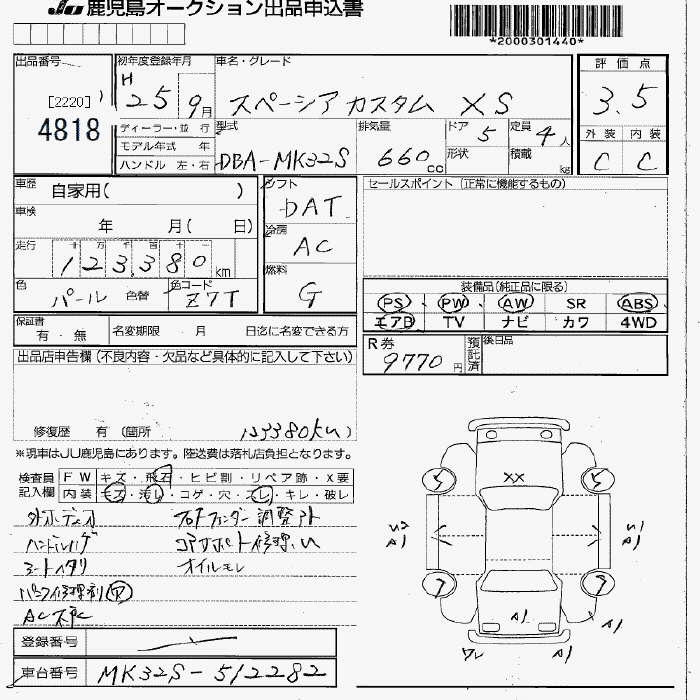 JU 鹿児島オークション出品申込書
*2000301440*
出品番号
[2220]
4818
初年度登録年月
H 25 9月
車名・グレード
スペーシア カスタム XS
評価点
3.5
外装 内装
C C
ディーラー・並行
モデル年式 年
ハンドル 左・右
型式
DBA-MK32S
排気量
660cc
ドア 5
形状
定員 4人
積載 kg
車歴 自家用( )
車検 年 月( 日)
走行 十万千百十
123,380km
色 パール 色替
色コード Z7T
シフト DAT
冷房 AC
燃料 G
セールスポイント(正常に機能するもの)
装備品(純正品に限る)
PS PW AW SR ABS
エアB TV ナビ カワ 4WD
保証書
有・無
名変期限 月 日迄に名変できる方
R券 9770円
預託済
後日品
出品店申告欄(不良内容・欠品など具体的に記入して下さい)
修復歴 有(箇所 )
123380km
※現車はJU鹿児島にあります。陸送費は落札店負担となります。
検査員記入欄
FW キズ・飛石・ヒビ割・リペア跡・X要
内装 キズ・汚レ・コゲ・穴・スレ・キレ・破レ
外ホディオ フロントフェンダー調整外
ハンドルハゲ コアサポート修理
シートヘタリ オイルモレ
パンク修理剤
AC
登録番号
車台番号 MK32S-512282
XX
5 5
7 7
A1
A1
A1
ワレ A1